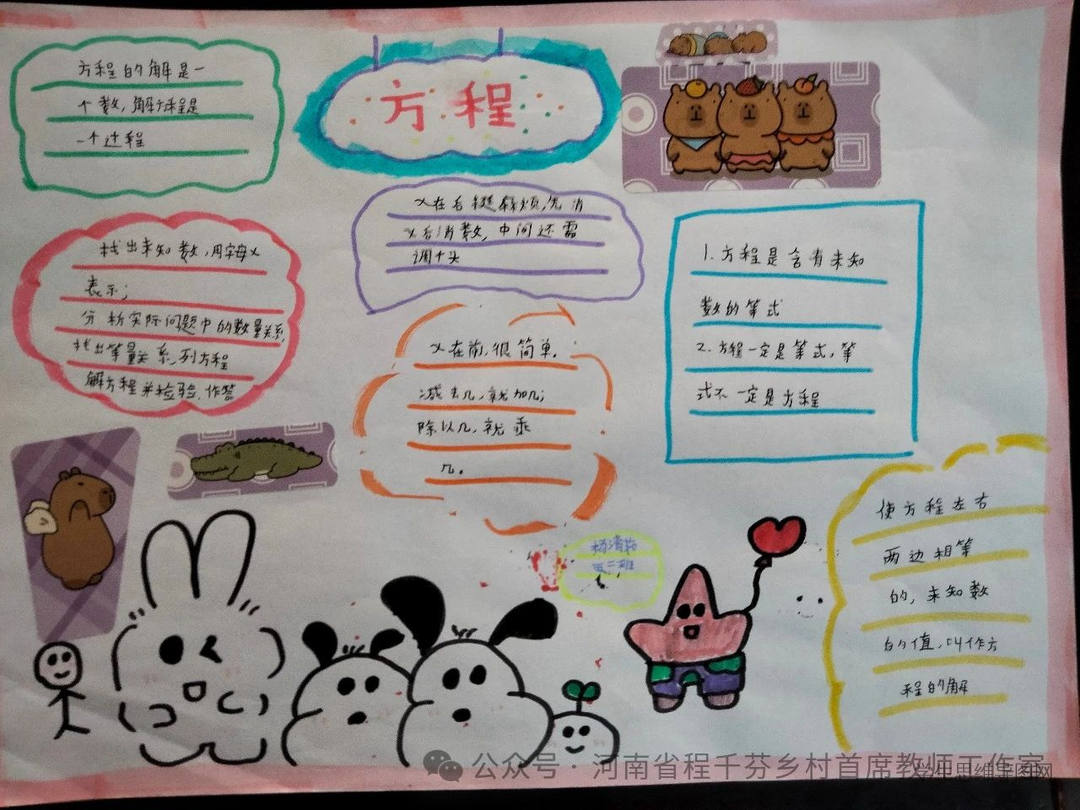 方程
方程的解是一
个数,解方程是
一个过程
x在后挺麻烦,先消
x后消数,中间还需
调个头
找出未知数,用字母x
表示;
分析实际问题中的数量关系,
找出等量关系,列方程
解方程并检验.作答
x在前,很简单.
减去几,就加几;
除以几,就乘
几。
1.方程是含有未知
数的等式
2.方程一定是等式,等
式不一定是方程
使方程左右
两边相等
的,未知数
的值,叫作方
程的解
五二班
公众号·河南省程千芬乡村首席教师工作室
思维导图网